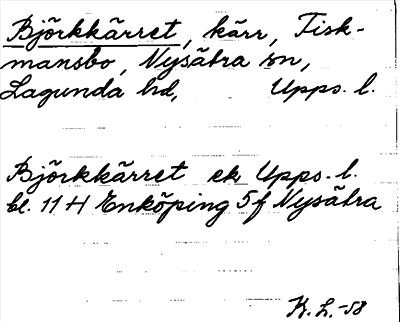 Björkkärret, kärr, Fisk-
mansbo, Nysätra sn,
Lagunda hd, Upps. l.
Björkkärret ek Upps. l.
bl. 11 H Enköping 5 f Nysätra
K. L. -58